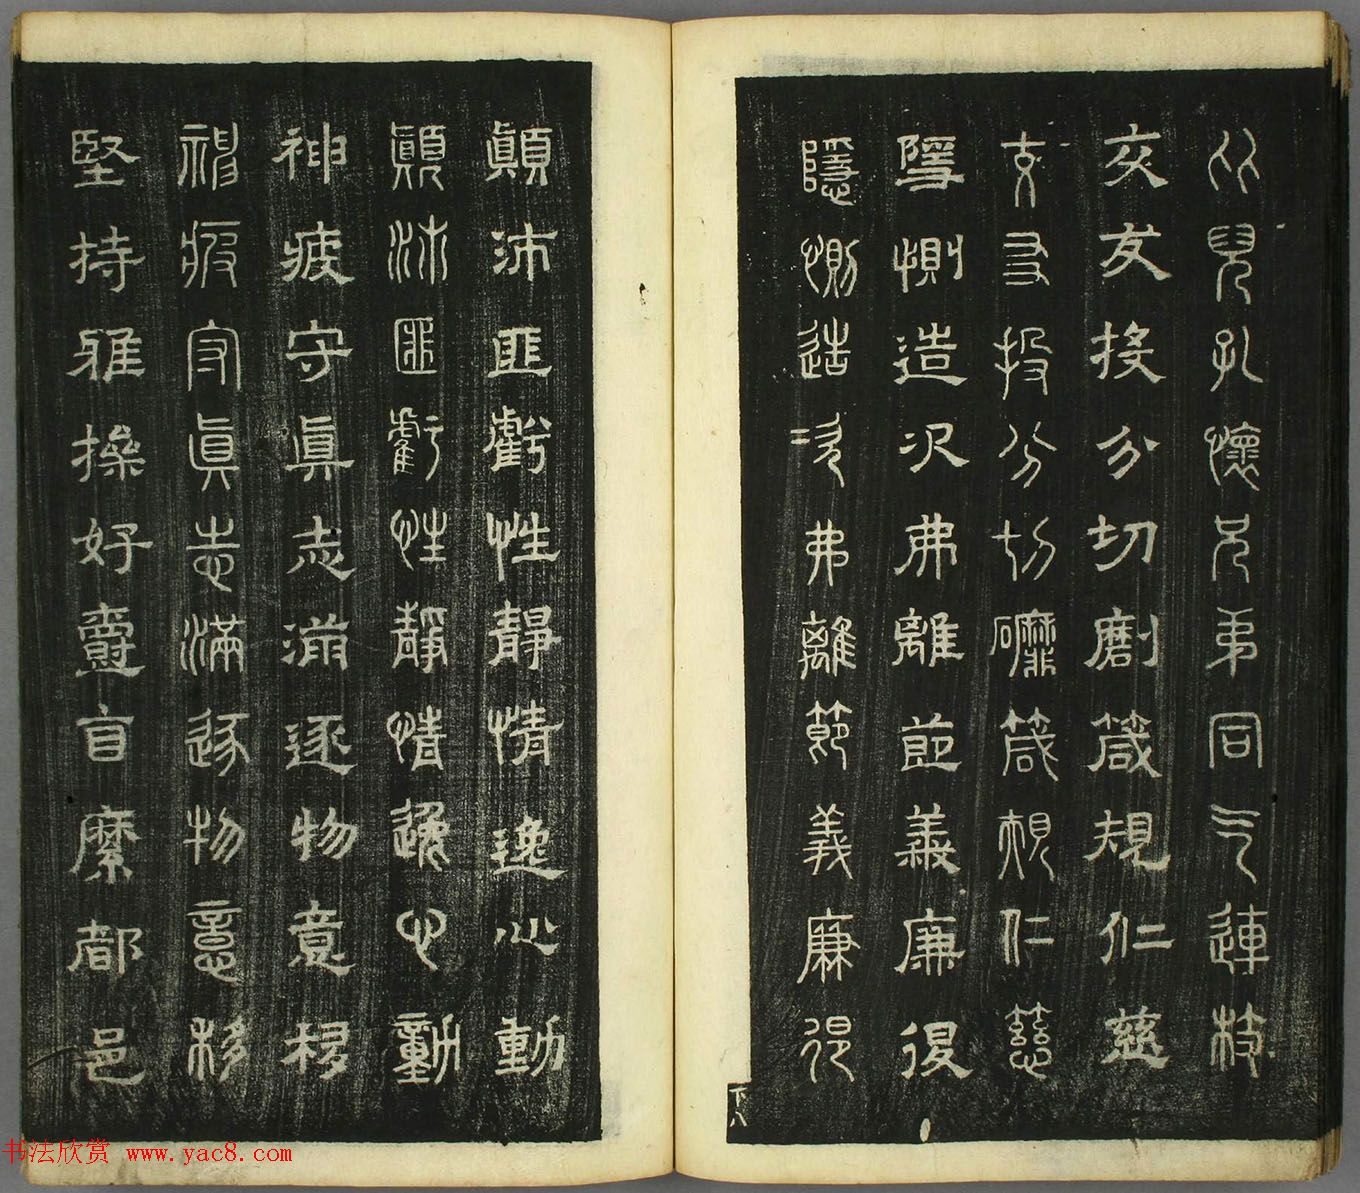 比兒孔懷兄弟同气連枝
交友投分切磨箴規仁慈
交友投分切磨箴規仁慈
隱惻造次弗離節義廉退
隱惻造次弗離節義廉退
下八
顛沛匪虧性靜情逸心動
顛沛匪虧性靜情逸心動
神疲守眞志滿逐物意移
神疲守眞志滿逐物意移
堅持雅操好爵自縻都邑
书法欣赏 www.yac8.com